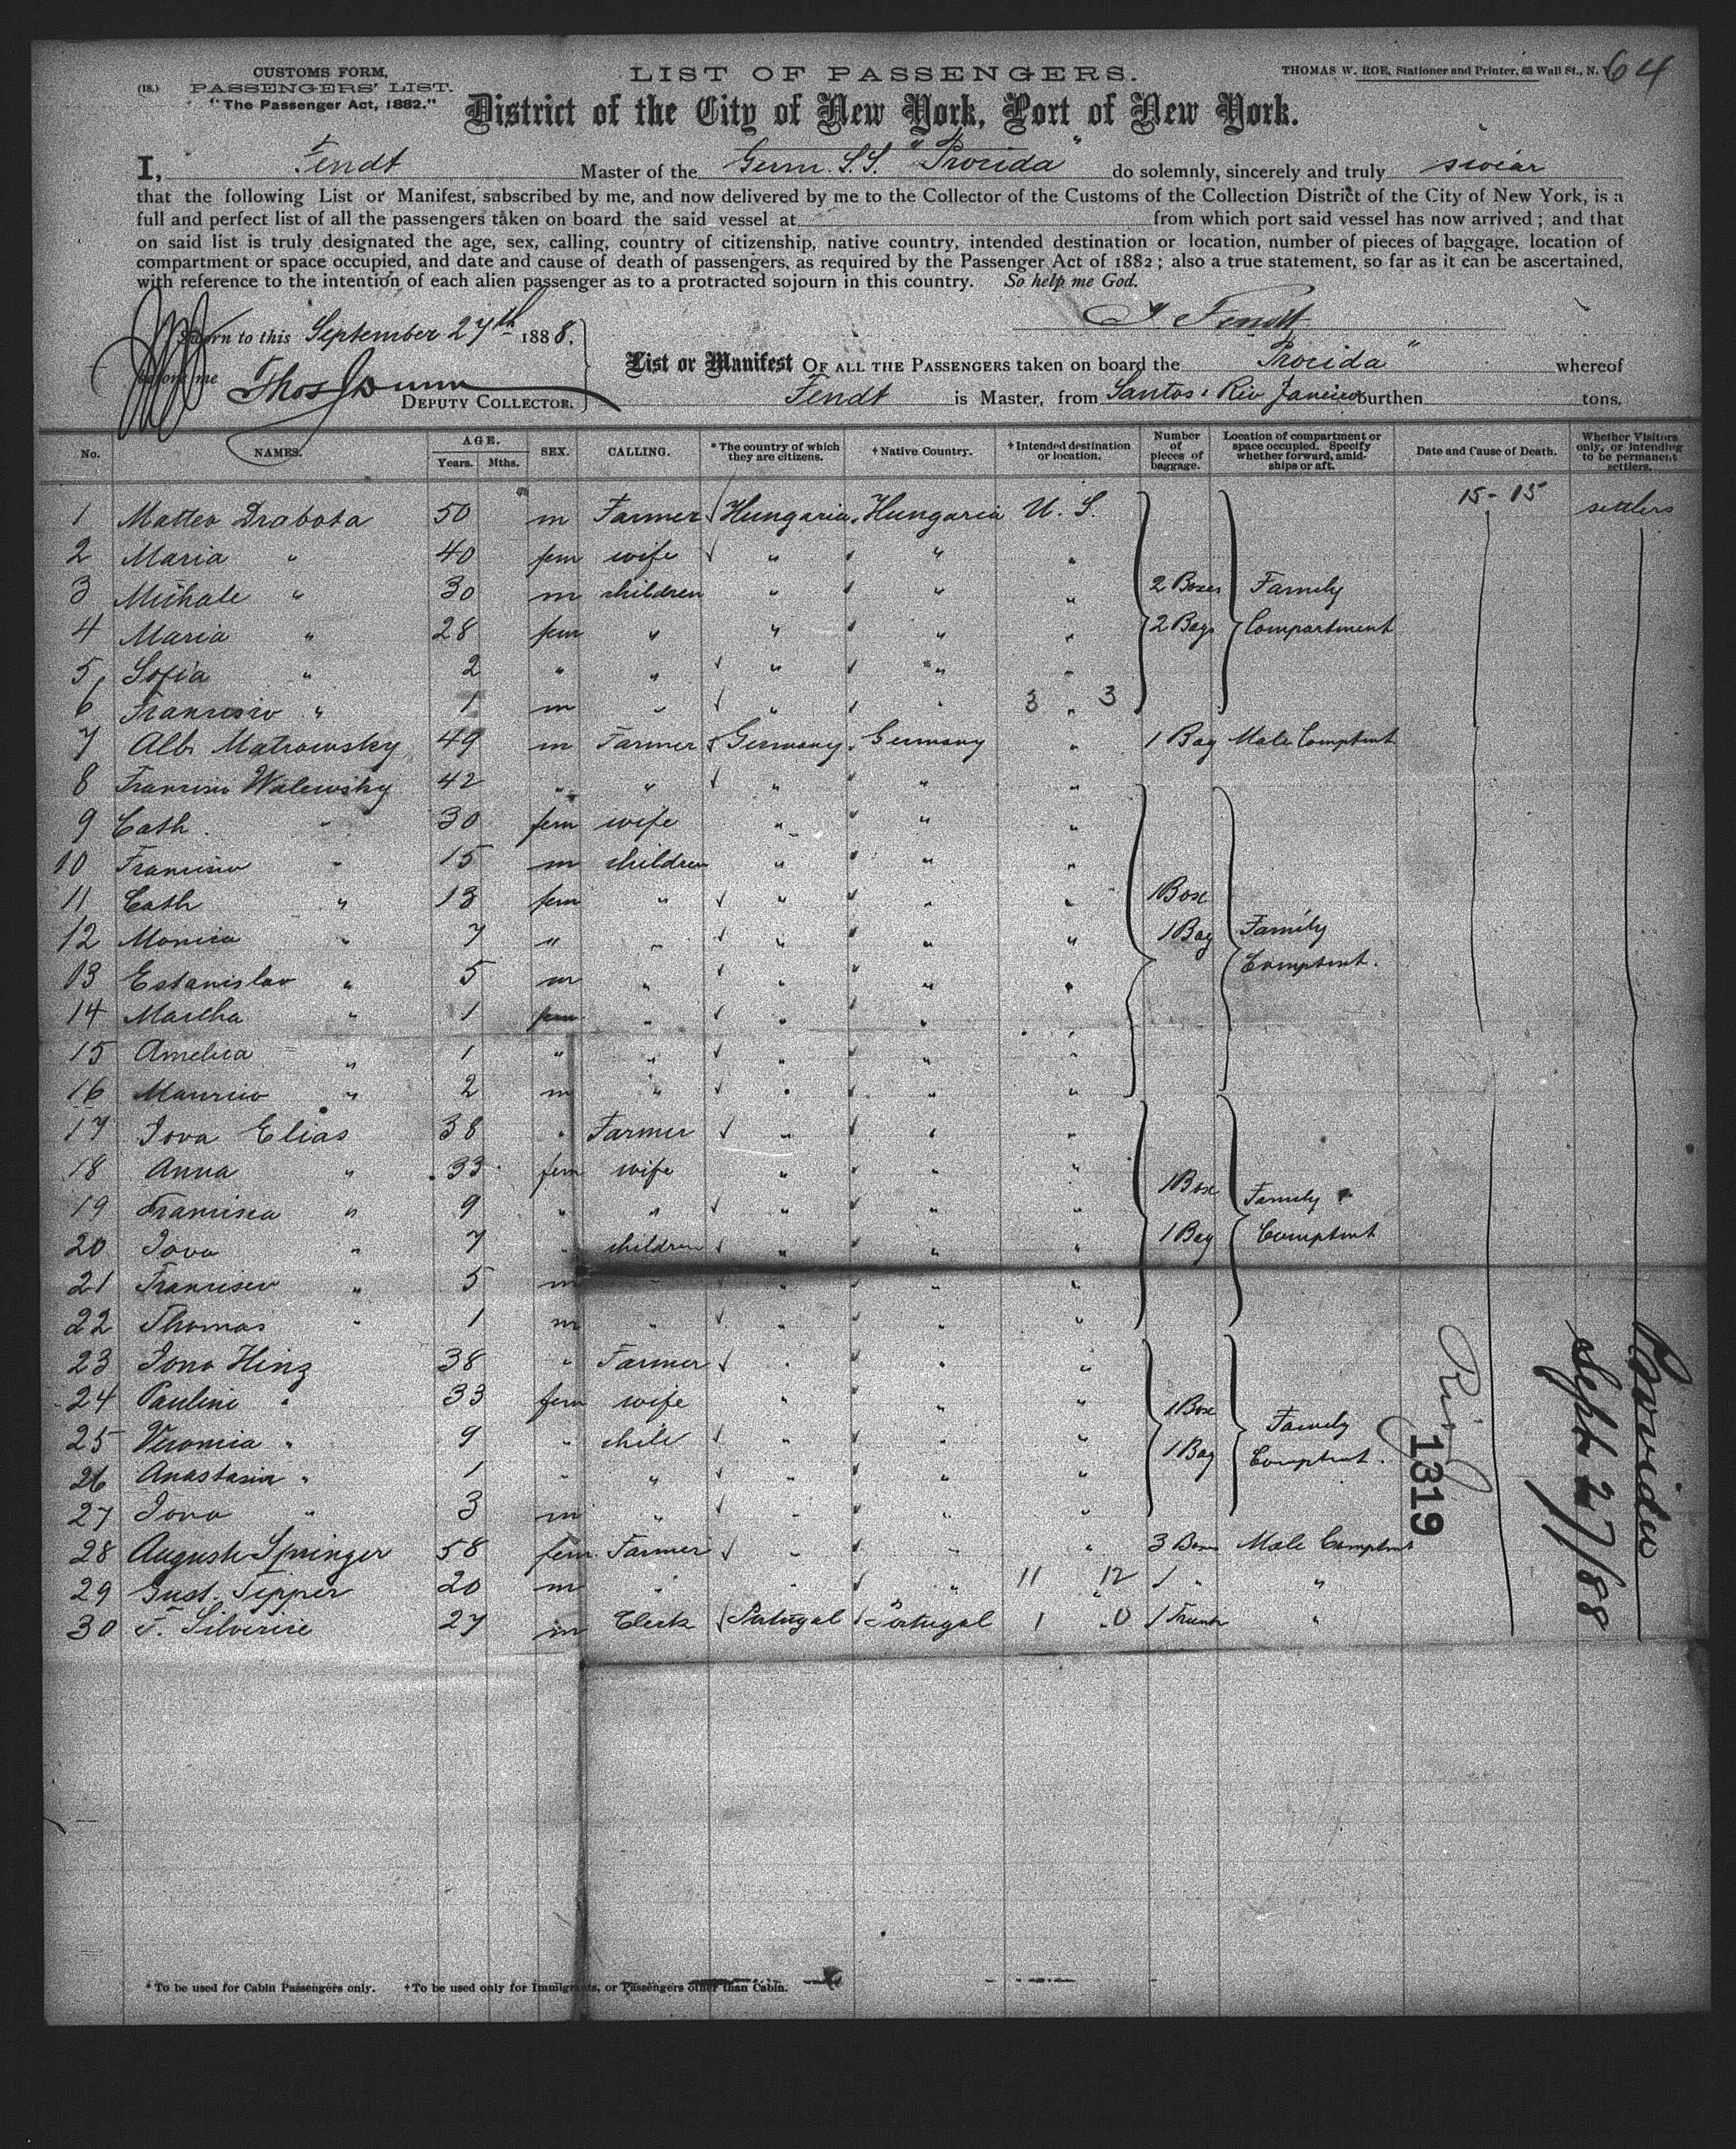 CUSTOMS FORM,
(18.) PASSENGERS' LIST.
"The Passenger Act, 1882."
LIST OF PASSENGERS.
THOMAS W. ROE, Stationer and Printer, 63 Wall St., N. 64
District of the City of New York, Port of New York.
I, Fendt Master of the Germ. S.S. "Procida" do solemnly, sincerely and truly swear
that the following List or Manifest, subscribed by me, and now delivered by me to the Collector of the Customs of the Collection District of the City of New York, is a
full and perfect list of all the passengers taken on board the said vessel at from which port said vessel has now arrived; and that
on said list is truly designated the age, sex, calling, country of citizenship, native country, intended destination or location, number of pieces of baggage, location of
compartment or space occupied, and date and cause of death of passengers, as required by the Passenger Act of 1882; also a true statement, so far as it can be ascertained,
with reference to the intention of each alien passenger as to a protracted sojourn in this country. So help me God.
Sworn to this September 27th 1888. J. Fendt
before me Thos J Dunn
DEPUTY COLLECTOR.
List or Manifest OF ALL THE PASSENGERS taken on board the Procida" whereof
Fendt is Master, from Santos, Rio Janeiro burthen tons.
No. NAMES. AGE. Years. Mths. SEX. CALLING. *The country of which they are citizens. †Native Country. †Intended destination or location. Number of pieces of baggage. Location of compartment or space occupied. Specify whether forward, amidships or aft. Date and Cause of Death. Whether Visitors only, or intending to be permanent settlers.
1 Matteo Drabota 50 m Farmer Hungaria Hungaria U. S. 15-15 settlers
2 Maria " 40 fem wife " " "
3 Michale " 30 m children " " " 2 Boxes Family
4 Maria " 28 fem " " " " 2 Bags Compartment
5 Sofia " 2 " " " " "
6 Francisco " 1 m " " " 3 " 3
7 Alb. Matrowsky 49 m Farmer Germany Germany " 1 Bag Male Comptmt
8 Francisco Walewsky 42 " " " " "
9 Cath. " 30 fem wife " " "
10 Francisco " 15 m children " " "
11 Cath " 13 fem " " " " 1 Box
12 Monica " 7 " " " " " 1 Bag Family
13 Estanislav " 5 m " " " " Comptmt.
14 Martha " 1 fem " " " "
15 Amelica " 1 " " " " "
16 Mauricio " 2 m " " " "
17 Jova Elias 38 " Farmer " " "
18 Anna " 33 fem wife " " " 1 Box
19 Francisca " 9 " " " " " Family
20 Jova " 7 " children " " " 1 Bag Comptmt
21 Francisco " 5 m " " " "
22 Thomas " 1 m " " " "
23 Jona Hinz 38 " Farmer " " "
24 Pauline " 33 fem wife " " " 1 Box Family
25 Veronica " 9 " child " " " 1 Bag Comptmt.
26 Anastasia " 1 " " " " "
27 Jova " 3 m " " " "
28 Auguste Springer 58 fem. Farmer " " " 3 Boxes Male Comptmt
29 Gust. Tipper 20 m " " " 11 " 12 1 " "
30 F. Silverire 27 m Clerk Portugal Portugal 1 0 1 Trunk "
1319
Sept 27/88
*To be used for Cabin Passengers only. †To be used only for Immigrants, or Passengers other than Cabin.